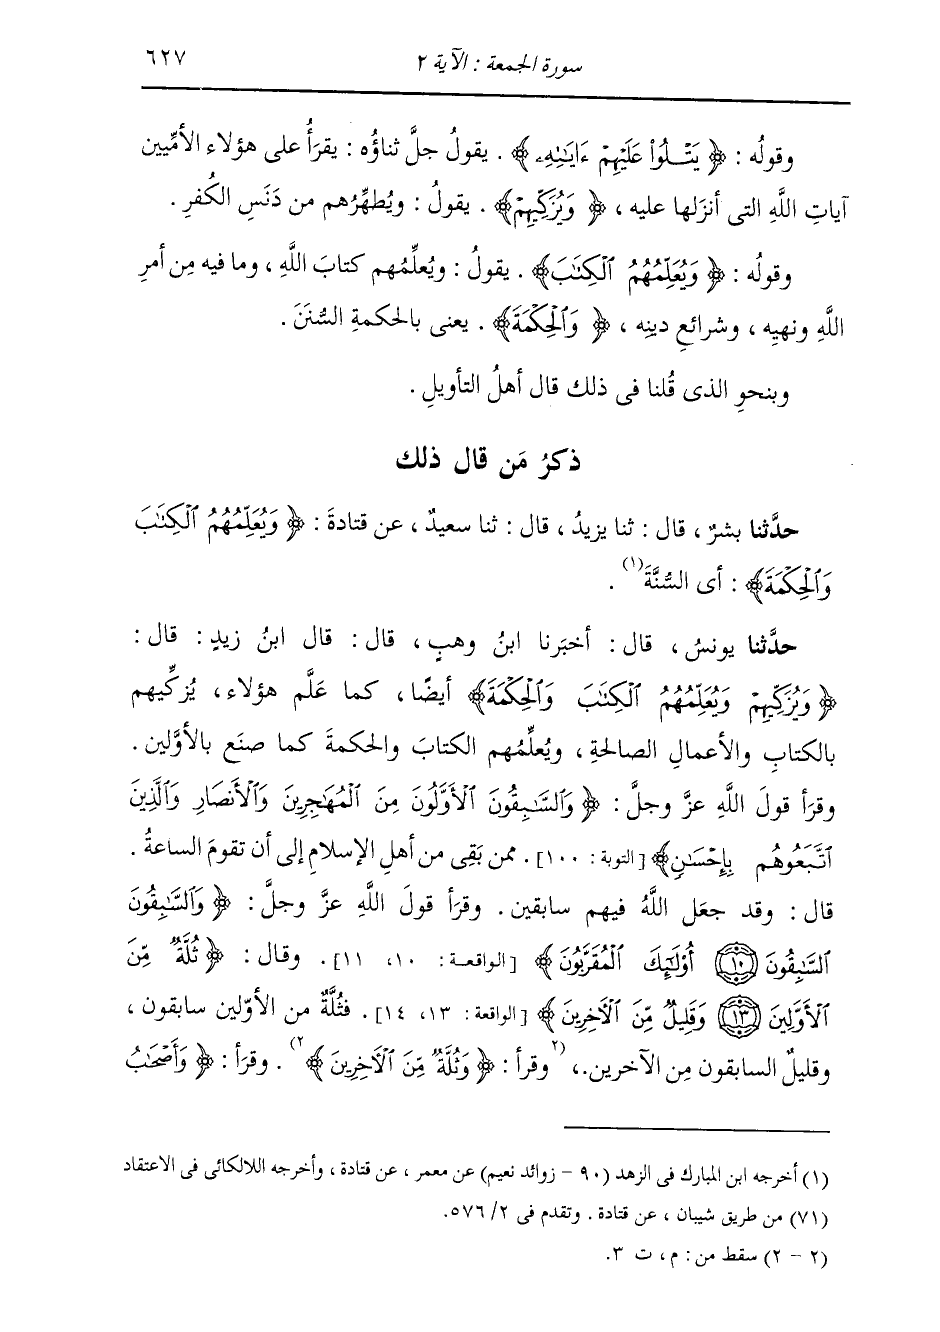 سورة الجمعة : الآية ٢
٦٢٧
وقولُه : ﴿ يَتْلُوا۟ عَلَيْهِمْ ءَايَٰتِهِۦ ﴾ . يقولُ جلَّ ثناؤُه : يقرَأُ على هؤلاء الأمِّيين
آياتِ اللَّهِ التى أنزَلها عليه ، ﴿ وَيُزَكِّيهِمْ ﴾ . يقولُ : ويُطهِّرُهم من دَنَسِ الكُفرِ .
وقولُه : ﴿ وَيُعَلِّمُهُمُ ٱلْكِتَٰبَ ﴾ . يقولُ : ويُعلِّمُهم كتابَ اللَّهِ ، وما فيه مِن أمرِ
اللَّهِ ونهيِه ، وشرائعِ دينِه ، ﴿ وَٱلْحِكْمَةَ ﴾ . يعنى بالحكمةِ السُّنَنَ .
وبنحوِ الذى قُلنا فى ذلك قال أهلُ التأويلِ .
ذكرُ مَن قال ذلك
حدَّثنا بشرٌ ، قال : ثنا يزيدُ ، قال : ثنا سعيدٌ ، عن قتادةَ : ﴿ وَيُعَلِّمُهُمُ ٱلْكِتَٰبَ
وَٱلْحِكْمَةَ ﴾ : أى السُّنَّةَ (١) .
حدَّثنا يونسُ ، قال : أخبَرنا ابنُ وهبٍ ، قال : قال ابنُ زيدٍ : قال :
﴿ وَيُزَكِّيهِمْ وَيُعَلِّمُهُمُ ٱلْكِتَٰبَ وَٱلْحِكْمَةَ ﴾ أيضًا ، كما عَلَّم هؤلاء ، يُزكِّيهم
بالكتابِ والأعمالِ الصالحةِ ، ويُعلِّمُهم الكتابَ والحكمةَ كما صنَع بالأوَّلين .
وقرَأ قولَ اللَّهِ عزَّ وجلَّ : ﴿ وَٱلسَّٰبِقُونَ ٱلْأَوَّلُونَ مِنَ ٱلْمُهَٰجِرِينَ وَٱلْأَنصَارِ وَٱلَّذِينَ
ٱتَّبَعُوهُم بِإِحْسَٰنٍ ﴾ [التوبة : ١٠٠] . ممن بَقِى من أهلِ الإسلامِ إلى أن تقومَ الساعةُ .
قال : وقد جعَل اللَّهُ فيهم سابقين . وقرَأ قولَ اللَّهِ عزَّ وجلَّ : ﴿ وَٱلسَّٰبِقُونَ
ٱلسَّٰبِقُونَ ١٠ أُو۟لَٰٓئِكَ ٱلْمُقَرَّبُونَ ﴾ [الواقعة : ١٠، ١١] . وقال : ﴿ ثُلَّةٌ مِّنَ
ٱلْأَوَّلِينَ ١٣ وَقَلِيلٌ مِّنَ ٱلْءَاخِرِينَ ﴾ [الواقعة : ١٣، ١٤] . فثُلَّةٌ من الأوّلين سابقون ،
وقليلٌ السابقون مِن الآخرين.، (٢) وقرأ : ﴿ وَثُلَّةٌ مِّنَ ٱلْءَاخِرِينَ ﴾ (٢) . وقرَأ : ﴿ وَأَصْحَٰبُ
(١) أخرجه ابن المبارك فى الزهد (٩٠ - زوائد نعيم) عن معمر ، عن قتادة ، وأخرجه اللالكائى فى الاعتقاد
(٧١) من طريق شيبان ، عن قتادة . وتقدم فى ٢/ ٥٧٦.
(٢ - ٢) سقط من : م ، ت ٣.